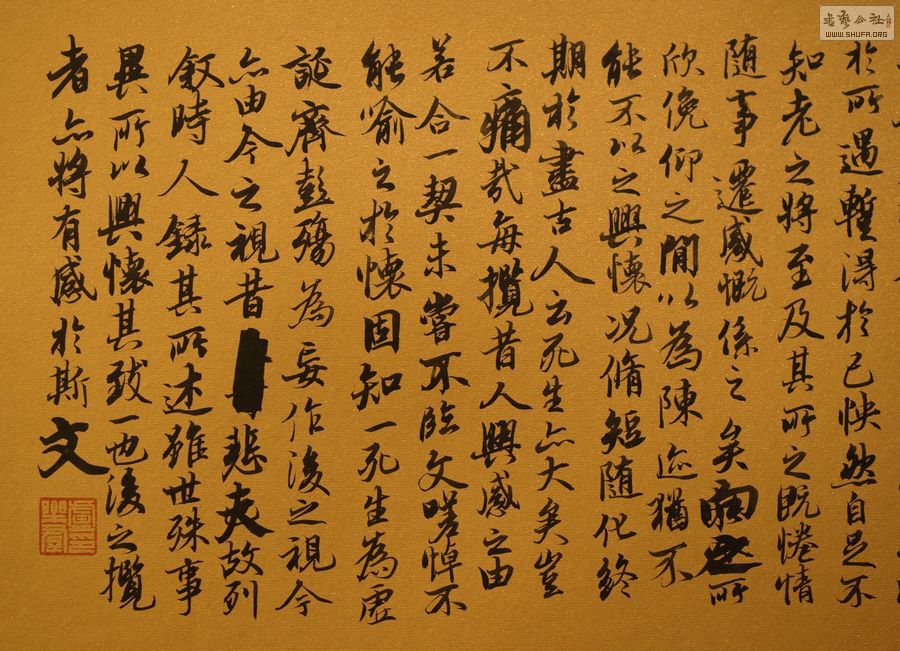 於所遇暫得於己怏然自足不
知老之將至及其所之既惓情
隨事遷感慨係之矣向之所
欣俛仰之閒以為陳迹猶不
能不以之興懷況脩短隨化終
期於盡古人云死生亦大矣豈
不痛哉每攬昔人興感之由
若合一契未嘗不臨文嗟悼不
能喻之於懷固知一死生為虛
誕齊彭殤為妄作後之視今
亦由今之視昔悲夫故列
敘時人錄其所述雖世殊事
異所以興懷其致一也後之攬
者亦將有感於斯文
WWW.SHUFA.ORG